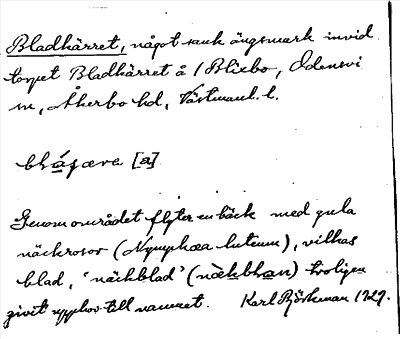 Bladkärret, något sank ängsmark invid
torpet Bladkärret å 1 Blixbo, Odensvi
sn, Åkerbo hd, Västmanl. l.
[a]
Genom området flyter en bäck med gula
näckrosor (Nymphæa luteum), vilkas
blad, 'näckblad' (nækblan) troligen
givit upphov till namnet. Karl Björkman 1929.